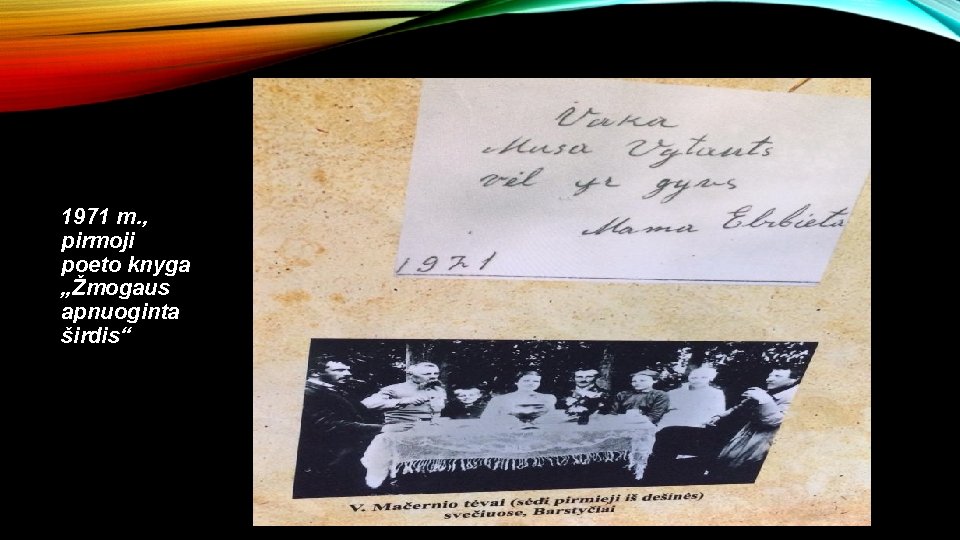 1971 m. ,
pirmoji
poeto knyga
„Žmogaus
apnuoginta
širdis“
Vaka
Musa Vytauts
vėl yr gyvs
Mama Elzbieta
1971
V. Mačernio tėvai (sėdi pirmieji iš dešinės)
svečiuose, Barstyčiai